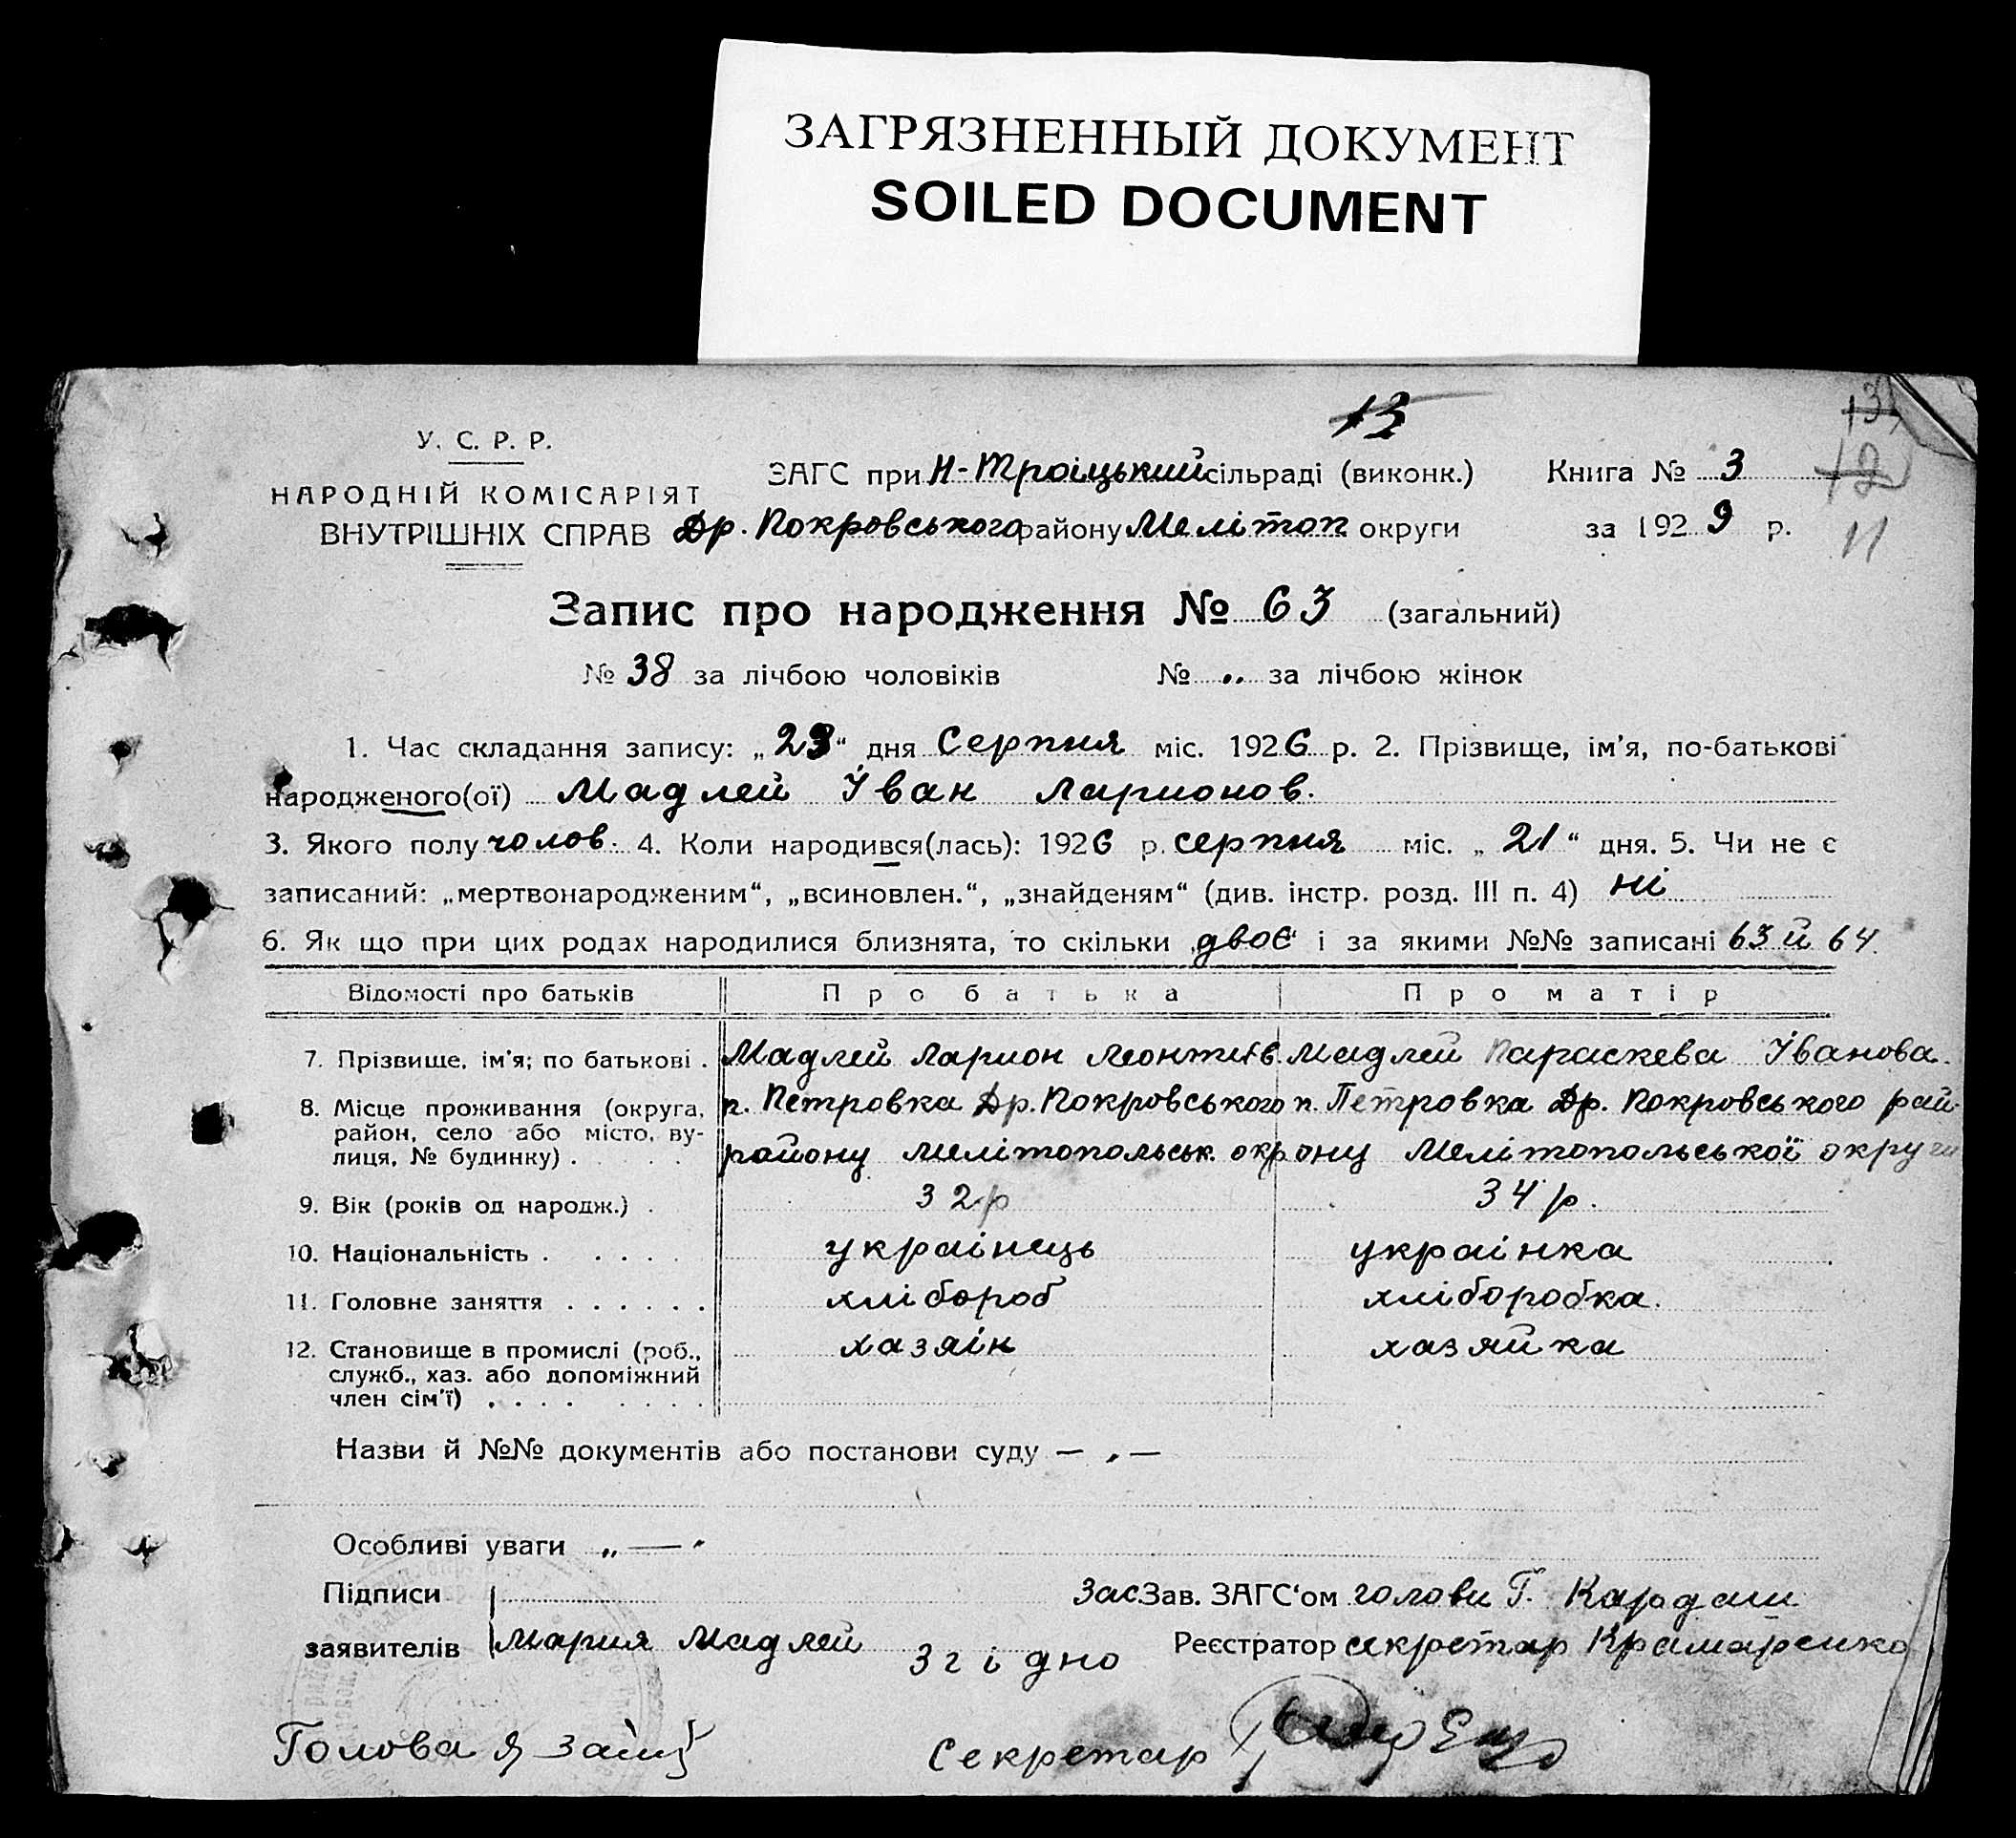 ЗАГРЯЗНЕННЫЙ ДОКУМЕНТ
SOILED DOCUMENT
13
13
12
11
У. С. Р. Р.
НАРОДНІЙ КОМІСАРІЯТ
ВНУТРІШНІХ СПРАВ
ЗАГС при Н-Троіцький сільраді (виконк.) Книга № 3
Др. Покровського району Мелітоп округи за 1929 р.
Запис про народження № 63 (загальний)
№ 38 за лічбою чоловіків № „ за лічбою жінок
1. Час складання запису: „23“ дня Серпня міс. 1926 р. 2. Прізвище, ім'я, по-батькові
народженого(ої) Мадлей Іван Ларионов.
3. Якого полу чолов. 4. Коли народився(лась): 1926 р. серпня міс. „21“ дня. 5. Чи не є
записаний: „мертвонародженим“, „всиновлен.“, „знайденям“ (див. інстр. розд. III п. 4) ні
6. Як що при цих родах народилися близнята, то скільки „двоє“ і за якими №№ записані 63 й 64.
Відомості про батьків Про батька Про матір
7. Прізвище, ім'я; по батькові . Мадлей Ларион Леонтиів. Мадлей Параскева Іванова.
8. Місце проживання (округа, район, село або місто, вулиця, № будинку) . п. Петровка Др. Покровського п. Петровка Др. Покровського рай-
району Мелітопольськ. окр ону Мелітопольської округи
9. Вік (років од народж.) . 32 р 34 р.
10. Національність . . . . . украінець украінка
11. Головне заняття . . . . . . хлібороб хліборобка.
12. Становище в промислі (роб., служб., хаз. або допоміжний член сім'ї) . . . . . . . . хазяін хазяйка
Назви й №№ документів або постанови суду — „ —
Особливі уваги „ — "
Підписи заявителів Мария Мадлей
Зас. Зав. ЗАГС'ом голови Г. Кардаш
Реєстратор секретар Крамаренко
Згідно
Голова Я Заіць
Секретар